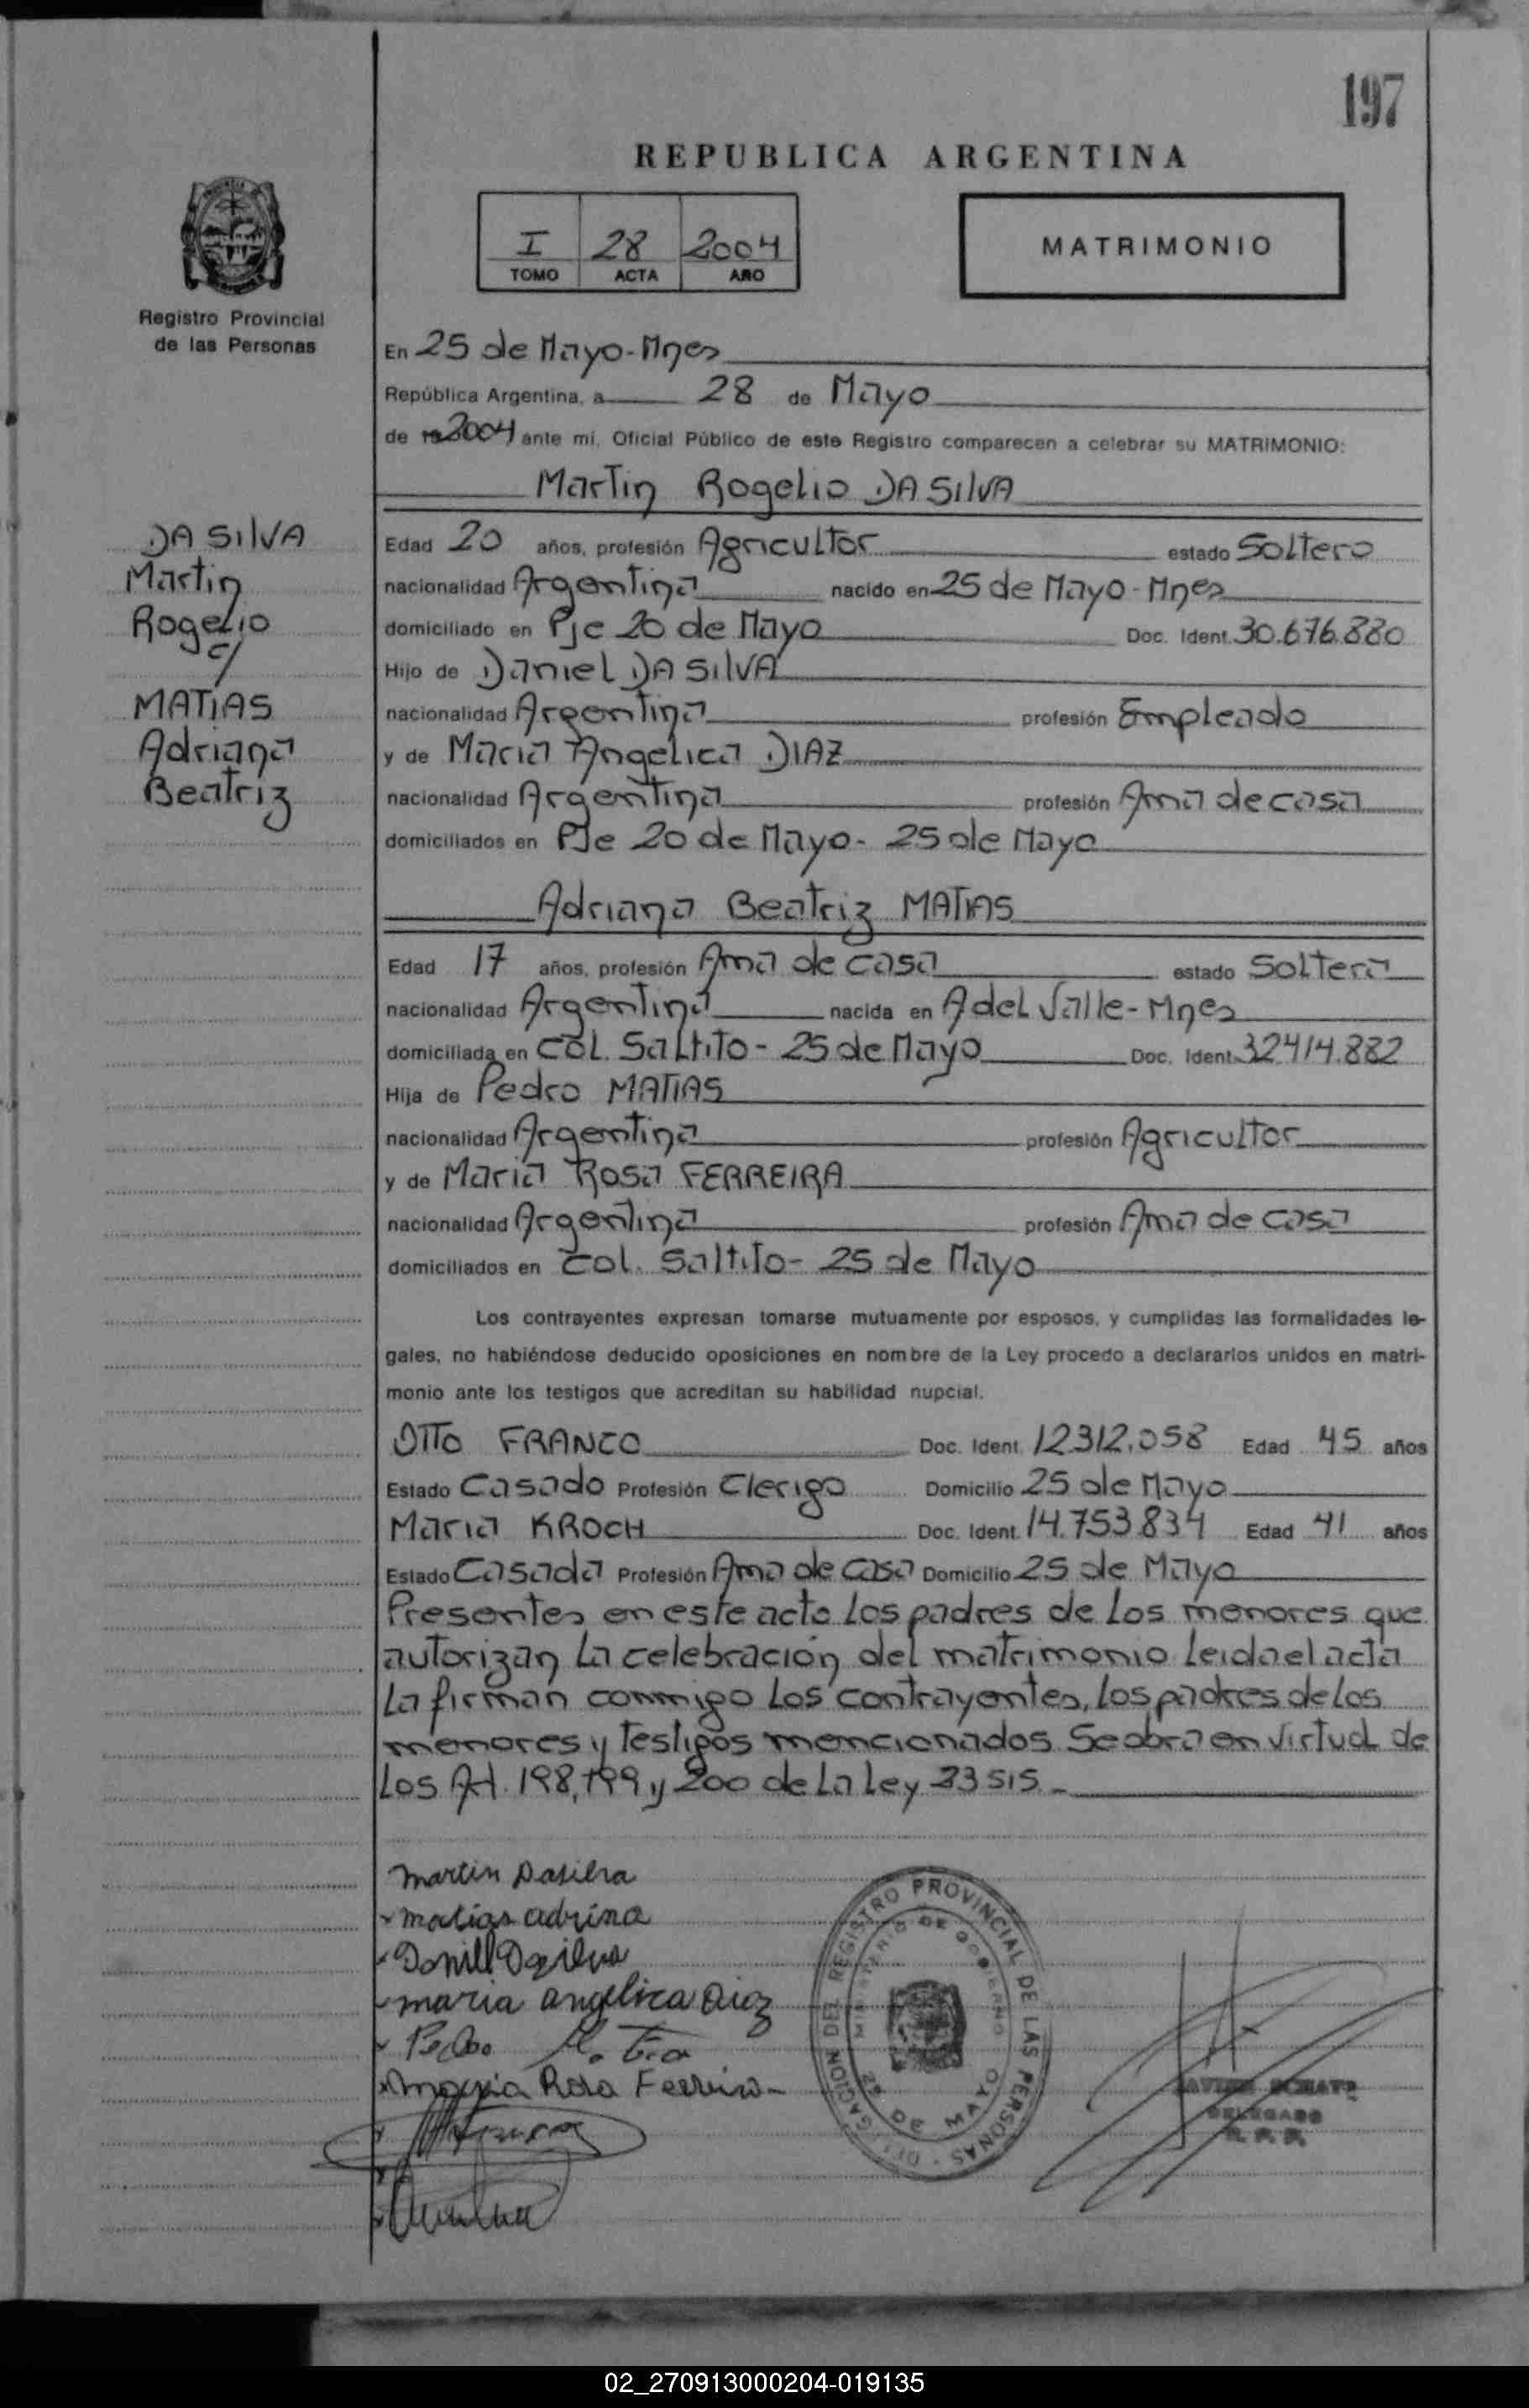 197
REPUBLICA ARGENTINA
I 28 2004
TOMO ACTA AÑO
MATRIMONIO
Registro Provincial
de las Personas
En 25 de Mayo-Mnes
República Argentina, a 28 de Mayo
de 19 2004 ante mi, Oficial Público de este Registro comparecen a celebrar su MATRIMONIO:
Martin Rogelio DA SILVA
DA SILVA
Martin
Rogelio
c/
MATIAS
Adriana
Beatriz
Edad 20 años, profesión Agricultor estado Soltero
nacionalidad Argentina nacido en 25 de Mayo-Mnes
domiciliado en Pje 20 de Mayo Doc. Ident. 30.676.880
Hijo de Daniel DA SILVA
nacionalidad Argentina profesión Empleado
y de Maria Angelica DIAZ
nacionalidad Argentina profesión Ama de casa
domiciliados en PJe 20 de Mayo- 25 de Mayo
Adriana Beatriz MATIAS
Edad 17 años, profesión Ama de casa estado Soltera
nacionalidad Argentina nacida en A del Valle-Mnes
domiciliada en COL. Saltito - 25 de Mayo Doc. Ident. 32414.882
Hija de Pedro MATIAS
nacionalidad Argentina profesión Agricultor
y de Maria Rosa FERREIRA
nacionalidad Argentina profesión Ama de casa
domiciliados en Col. Saltito- 25 de Mayo
Los contrayentes expresan tomarse mutuamente por esposos, y cumplidas las formalidades le-
gales, no habiéndose deducido oposiciones en nombre de la Ley procedo a declararlos unidos en matri-
monio ante los testigos que acreditan su habilidad nupcial.
OTTO FRANCO Doc. Ident. 12312.058 Edad 45 años
Estado Casado Profesión Clerigo Domicilio 25 de Mayo
Maria KROCH Doc. Ident. 14.753.834 Edad 41 años
Estado Casada Profesión Ama de casa Domicilio 25 de Mayo
Presentes en este acto los padres de los menores que
autorizan la celebración del matrimonio leida el acta
la firman conmigo los contrayentes, los padres de los
menores y testigos mencionados. Se obra en virtud de
los Art. 198, 199 y 200 de la ley 23515.-
martin Dasilva
matias adrina
maria angelica Diaz
Pedro
maria Rosa Ferreira-
REGISTRO PROVINCIAL DE LAS PERSONAS
MINISTERIO DE GOBIERNO
25 DE MAYO
DELEGADO
02_270913000204-019135